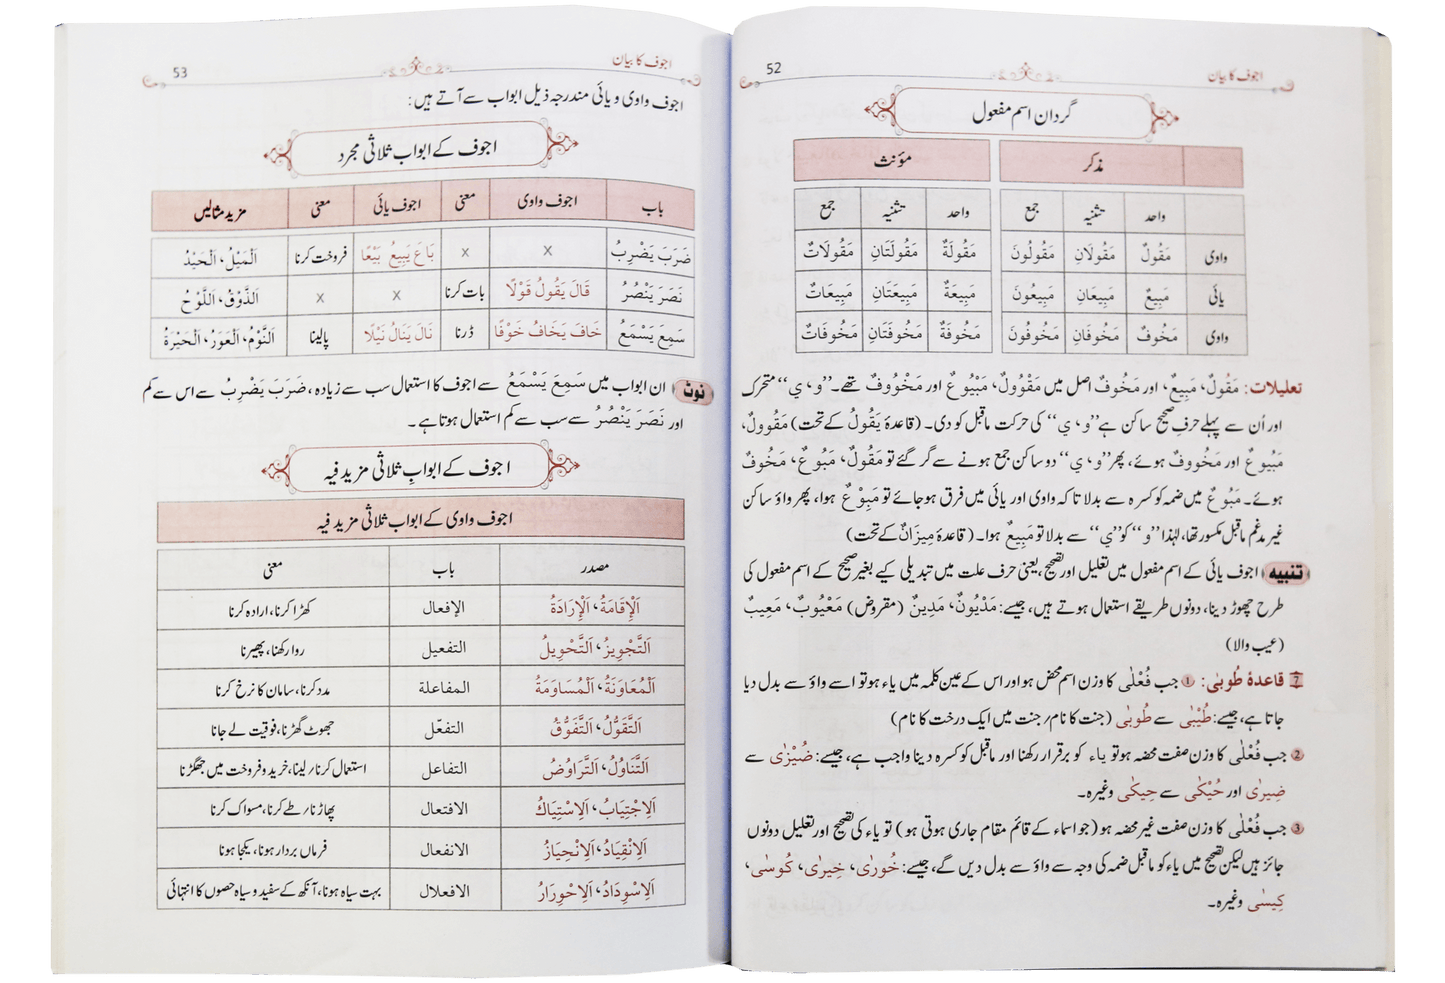 اجوف کا بیان
52
گردان اسم مفعول
مذکر مؤنث
واحد تثنیہ جمع واحد تثنیہ جمع
واوی مَقُولٌ مَقُولَانِ مَقُولُونَ مَقُولَةٌ مَقُولَتَانِ مَقُولَاتٌ
یائی مَبِيعٌ مَبِيعَانِ مَبِيعُونَ مَبِيعَةٌ مَبِيعَتَانِ مَبِيعَاتٌ
واوی مَخُوفٌ مَخُوفَانِ مَخُوفُونَ مَخُوفَةٌ مَخُوفَتَانِ مَخُوفَاتٌ
تعلیلات: مَقُولٌ، مَبِيعٌ، اور مَخُوفٌ اصل میں مَقْوُولٌ، مَبْيُوعٌ اور مَخْوُوفٌ تھے۔ ’’و، ي‘‘ متحرک
اور اُن سے پہلے حرفِ صحیح ساکن ہے ’’و، ي‘‘ کی حرکت ماقبل کو دی۔ (قاعدۂ يَقُولُ کے تحت) مَقُوولٌ،
مَبُيوعٌ اور مَخُووفٌ ہوئے، پھر ’’و، ي‘‘ دو ساکن جمع ہونے سے گر گئے تو مَقُولٌ، مَبُوعٌ، مَخُوفٌ
ہوئے۔ مَبُوعٌ میں ضمہ کو کسرہ سے بدلا تاکہ واوی اور یائی میں فرق ہو جائے تو مَبِوْعٌ ہوا، پھر واؤ ساکن
غیر مدغم ماقبل مکسور تھا، لہٰذا ’’و‘‘ کو ’’ي‘‘ سے بدلا تو مَبِيعٌ ہوا۔ (قاعدۂ مِيزَانٌ کے تحت)
تنبیہ اجوف یائی کے اسم مفعول میں تعلیل اور تصحیح، یعنی حرف علت میں تبدیلی کیے بغیر صحیح کے اسم مفعول کی
طرح چھوڑ دینا، دونوں طریقے استعمال ہوتے ہیں، جیسے: مَدْيُونٌ، مَدِينٌ (مقروض) مَعْيُوبٌ، مَعِيبٌ
(عیب والا)
7 قاعدۂ طُوبٰی: ① جب فُعْلٰی کا وزن اسم محض ہو اور اس کے عین کلمہ میں یاء ہو تو اسے واؤ سے بدل دیا
جاتا ہے، جیسے: طُيْبٰی سے طُوبٰی (جنت کا نام/ جنت میں ایک درخت کا نام)
② جب فُعْلٰی کا وزن صفت محضہ ہو تو یاء کو برقرار رکھنا اور ماقبل کو کسرہ دینا واجب ہے، جیسے: ضُيْزٰی سے
ضِيزٰی اور حُيْكٰی سے حِيكٰی وغیرہ۔
③ جب فُعْلٰی کا وزن صفت غیر محضہ ہو (جو اسماء کے قائم مقام جاری ہوتی ہو) تو یاء کی تصحیح اور تعلیل دونوں
جائز ہیں لیکن تصحیح میں یاء کو ماقبل ضمہ کی وجہ سے واؤ سے بدل دیں گے، جیسے: خُورٰی، خِيرٰی، كُوسٰی،
كِيسٰی وغیرہ۔
اجوف کا بیان
53
اجوف واوی و یائی مندرجہ ذیل ابواب سے آتے ہیں:
اجوف کے ابواب ثلاثی مجرد
باب اجوف واوی معنی اجوف یائی معنی مزید مثالیں
ضَرَبَ يَضْرِبُ x x بَاعَ يَبِيعُ بَيْعًا فروخت کرنا اَلْمَيْلُ، اَلْحَيْدُ
نَصَرَ يَنْصُرُ قَالَ يَقُولُ قَوْلًا بات کرنا x x اَلذَّوْقُ، اَللَّوْحُ
سَمِعَ يَسْمَعُ خَافَ يَخَافُ خَوْفًا ڈرنا نَالَ يَنَالُ نَيْلًا پالینا اَلنَّوْمُ، اَلْعَوَرُ، اَلْحَيْرَةُ
نوٹ ان ابواب میں سَمِعَ يَسْمَعُ سے اجوف کا استعمال سب سے زیادہ، ضَرَبَ يَضْرِبُ سے اس سے کم
اور نَصَرَ يَنْصُرُ سے سب سے کم استعمال ہوتا ہے۔
اجوف کے ابوابِ ثلاثی مزید فیہ
اجوف واوی کے ابواب ثلاثی مزید فیہ
مصدر باب معنی
اَلْإِقَامَةُ، اَلْإِرَادَةُ الإفعال کھڑا کرنا، ارادہ کرنا
اَلتَّجْوِيزُ، اَلتَّحْوِيلُ التفعيل روا رکھنا، پھیرنا
اَلْمُعَاوَنَةُ، اَلْمُسَاوَمَةُ المفاعلة مدد کرنا، سامان کا نرخ کرنا
اَلتَّقَوُّلُ، اَلتَّفَوُّقُ التفعّل جھوٹ گھڑنا، فوقیت لے جانا
اَلتَّنَاوُلُ، اَلتَّرَاوُضُ التفاعل استعمال کرنا/ لینا، خرید و فروخت میں جھگڑنا
اَلِاجْتِيَابُ، اَلِاسْتِيَاكُ الافتعال پھاڑنا/ طے کرنا، مسواک کرنا
اَلِانْقِيَادُ، اَلِانْحِيَازُ الانفعال فرماں بردار ہونا، یکجا ہونا
اَلِاسْوِدَادُ، اَلِاحْوِرَارُ الافعلال بہت سیاہ ہونا، آنکھ کے سفید و سیاہ حصوں کا انتہائی